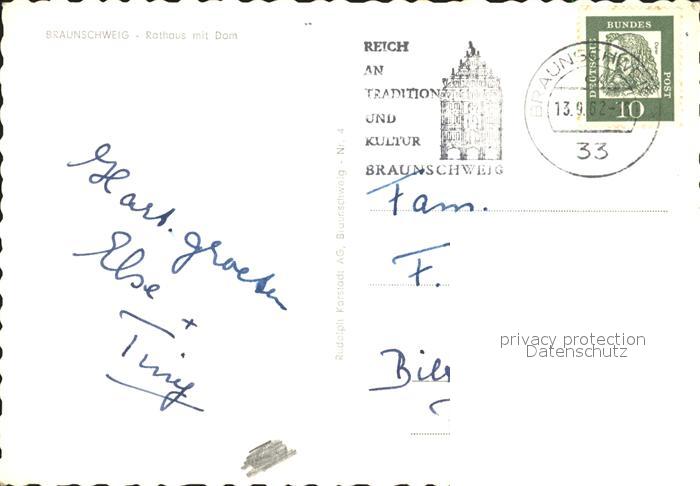 BRAUNSCHWEIG - Rathaus mit Dom
REICH
AN
TRADITION
UND
KULTUR
BRAUNSCHWEIG
BRAUNSCHWEIG
13.9.62-
33
DEUTSCHE
BUNDES
POST
10
Rudolph Karstadt AG, Braunschweig - Nr. 4
Hart. groeten
Else +
Tiny
Fam.
F.
Bil
privacy protection
Datenschutz